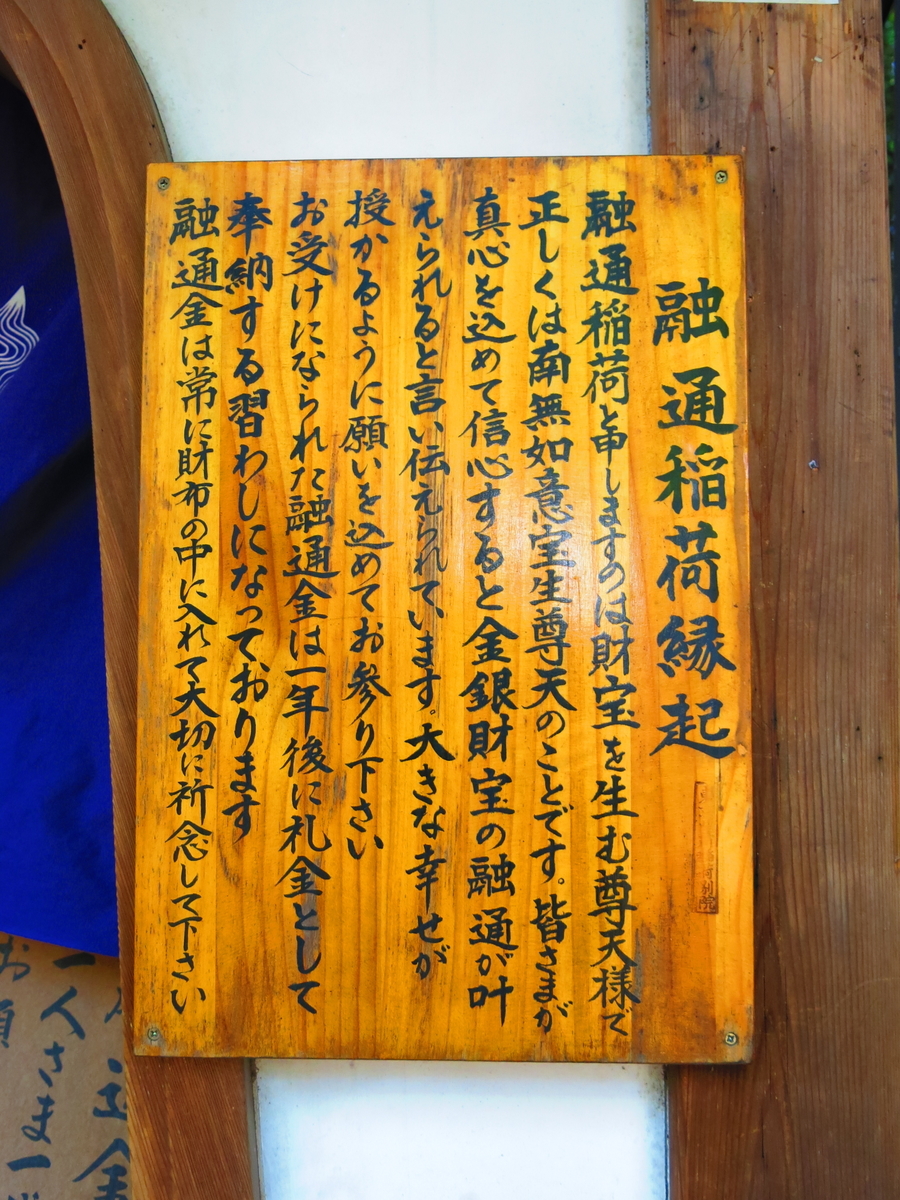 融通稲荷縁起
融通稲荷と申しますのは財宝を生む尊天様で
正しくは南無如意宝生尊天のことです。皆さまが
真心を込めて信心すると金銀財宝の融通が叶
えられると言い伝えられています。大きな幸せが
授かるように願いを込めてお参り下さい
お受けになられた融通金は一年後に礼金として
奉納する習わしになっております
融通金は常に財布の中に入れて大切に祈念して下さい
荷別院
金
一人さま一
お